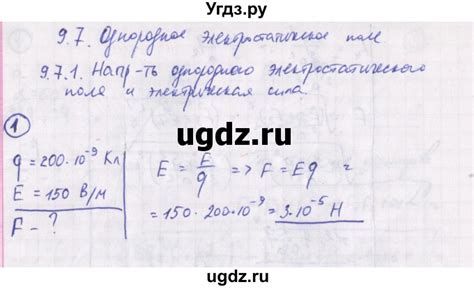 Угдз.ру
9.7. Однородное электростатическое поле
9.7.1. Напр-ть однородного электростатического
поля и электрическая сила.
ugdz.ru
1
q = 200·10⁻⁹ Кл
E = 150 В/м
F - ?
E = E/q => F = Eq =
= 150·200·10⁻⁹ = 3·10⁻⁵ Н
ugdz.ru